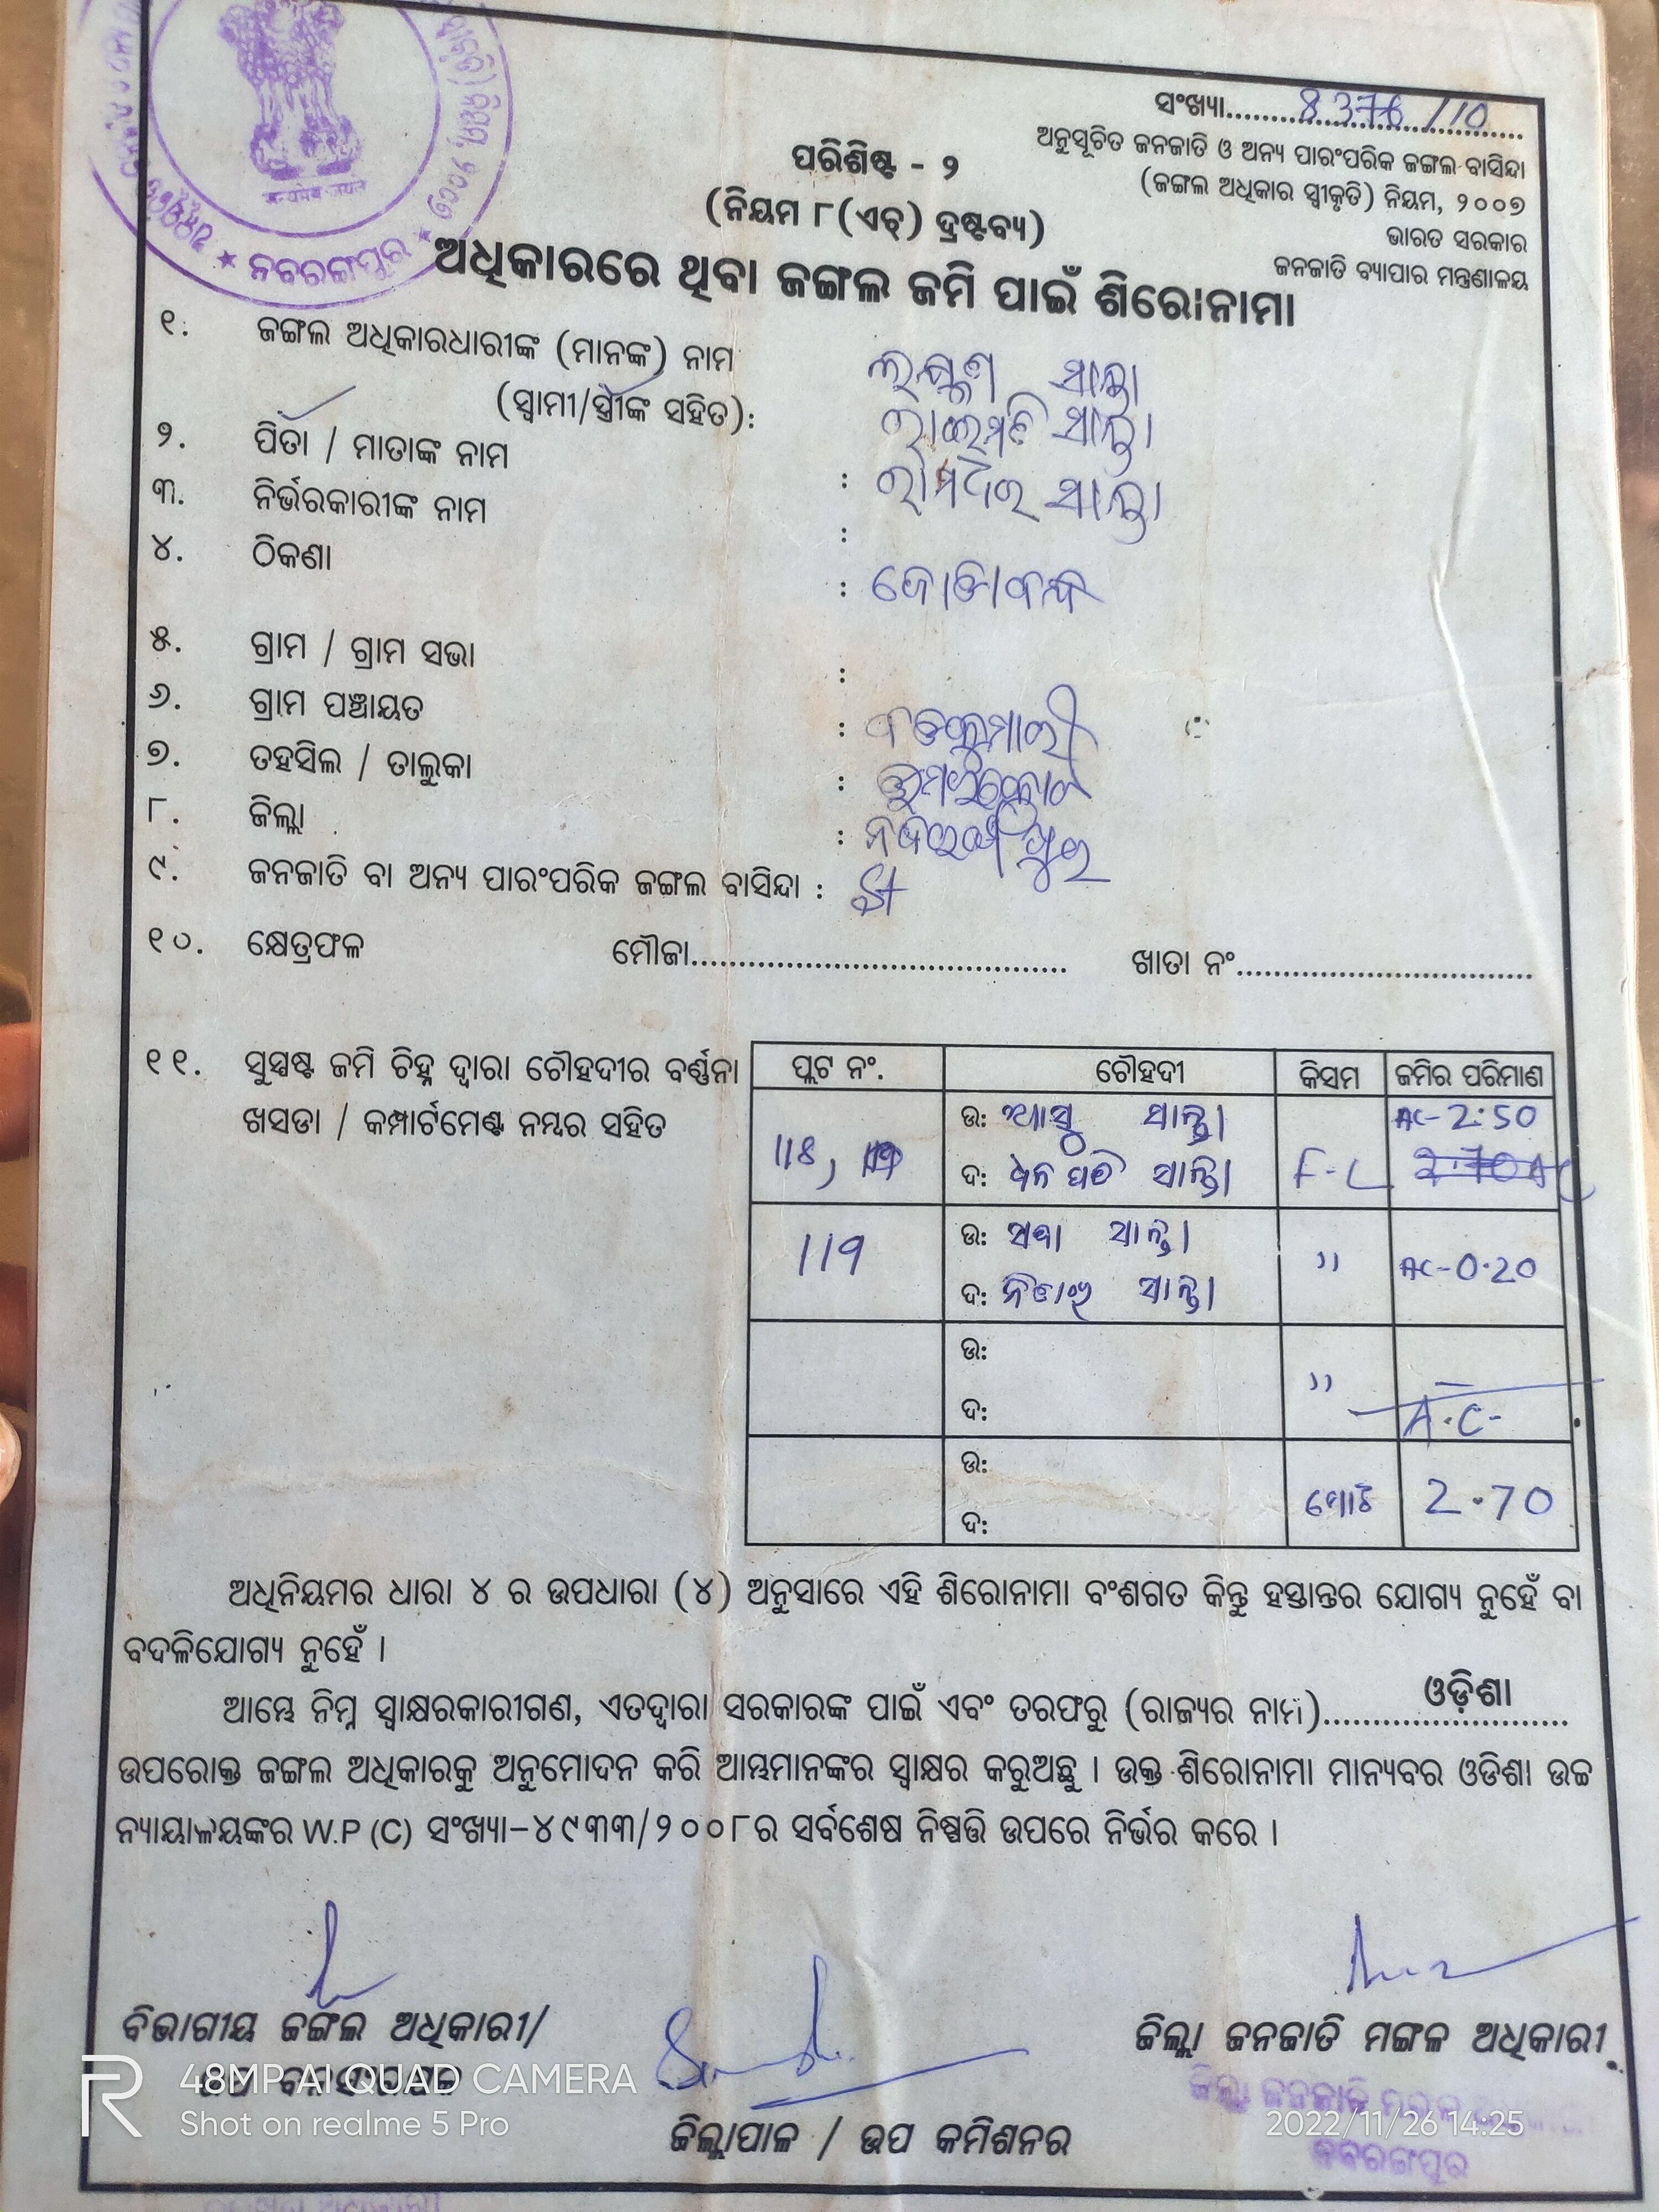 ସଂଖ୍ୟା..........8376/10..........
ଅନୁସୂଚିତ ଜନଜାତି ଓ ଅନ୍ୟ ପାରଂପରିକ ଜଙ୍ଗଲ ବାସିନ୍ଦା
(ଜଙ୍ଗଲ ଅଧିକାର ସ୍ୱୀକୃତି) ନିୟମ, ୨୦୦୭
ଭାରତ ସରକାର
ଜନଜାତି ବ୍ୟାପାର ମନ୍ତ୍ରଣାଳୟ
ପରିଶିଷ୍ଟ - ୨
(ନିୟମ ୮(ଏଚ୍) ଦ୍ରଷ୍ଟବ୍ୟ)
★ ନବରଙ୍ଗପୁର ★
ଅଧିକାରରେ ଥିବା ଜଙ୍ଗଲ ଜମି ପାଇଁ ଶିରୋନାମା
୧. ଜଙ୍ଗଲ ଅଧିକାରଧାରୀଙ୍କ (ମାନଙ୍କ) ନାମ ଲକ୍ଷ୍ମଣ ସାନ୍ତା
(ସ୍ୱାମୀ/ସ୍ତ୍ରୀଙ୍କ ସହିତ): ରାଇମତି ସାନ୍ତା
୨. ପିତା / ମାତାଙ୍କ ନାମ : ସାନ୍ତା
୩. ନିର୍ଭରକାରୀଙ୍କ ନାମ :
୪. ଠିକଣା :
୫. ଗ୍ରାମ / ଗ୍ରାମ ସଭା :
୬. ଗ୍ରାମ ପଞ୍ଚାୟତ :
୭. ତହସିଲ / ତାଲୁକା :
୮. ଜିଲ୍ଲା : ନବରଙ୍ଗପୁର
୯. ଜନଜାତି ବା ଅନ୍ୟ ପାରଂପରିକ ଜଙ୍ଗଲ ବାସିନ୍ଦା : St
୧୦. କ୍ଷେତ୍ରଫଳ ମୌଜା........................................ ଖାତା ନଂ................................
୧୧. ସୁସ୍ପଷ୍ଟ ଜମି ଚିହ୍ନ ଦ୍ୱାରା ଚୌହଦୀର ବର୍ଣ୍ଣନା
ଖସଡା / କମ୍ପାର୍ଟମେଣ୍ଟ ନମ୍ବର ସହିତ
ପ୍ଲଟ ନଂ. ଚୌହଦୀ କିସମ ଜମିର ପରିମାଣ
ଉ: ସାନ୍ତା AC-2:50
118, ଦ: ଧନପତି ସାନ୍ତା F-L 2.70 AC
119 ଉ: ସାନ୍ତା " AC-0.20
ଦ: ସାନ୍ତା
ଉ: "
ଦ: A.C-
ଉ: ମୋଟ 2.70
ଦ:
ଅଧିନିୟମର ଧାରା ୪ ର ଉପଧାରା (୪) ଅନୁସାରେ ଏହି ଶିରୋନାମା ବଂଶଗତ କିନ୍ତୁ ହସ୍ତାନ୍ତର ଯୋଗ୍ୟ ନୁହେଁ ବା
ବଦଳିଯୋଗ୍ୟ ନୁହେଁ ।
ଆମ୍ଭେ ନିମ୍ନ ସ୍ୱାକ୍ଷରକାରୀଗଣ, ଏତଦ୍ୱାରା ସରକାରଙ୍କ ପାଇଁ ଏବଂ ତରଫରୁ (ରାଜ୍ୟର ନାମ)........ଓଡ଼ିଶା........
ଉପରୋକ୍ତ ଜଙ୍ଗଲ ଅଧିକାରକୁ ଅନୁମୋଦନ କରି ଆମ୍ଭମାନଙ୍କର ସ୍ୱାକ୍ଷର କରୁଅଛୁ । ଉକ୍ତ ଶିରୋନାମା ମାନ୍ୟବର ଓଡିଶା ଉଚ୍ଚ
ନ୍ୟାୟାଳୟଙ୍କର W.P (C) ସଂଖ୍ୟା-୪୯୩୩/୨୦୦୮ର ସର୍ବଶେଷ ନିଷ୍ପତ୍ତି ଉପରେ ନିର୍ଭର କରେ ।
ବିଭାଗୀୟ ଜଙ୍ଗଲ ଅଧିକାରୀ/
ଜିଲ୍ଲା ଜନଜାତି ମଙ୍ଗଳ ଅଧିକାରୀ
ଜିଲ୍ଲାପାଳ / ଉପ କମିଶନର
ଜିଲ୍ଲା ଜନଜାତି ମଙ୍ଗଳ
ନବରଙ୍ଗପୁର
48MP AI QUAD CAMERA
Shot on realme 5 Pro
2022/11/26 14:25